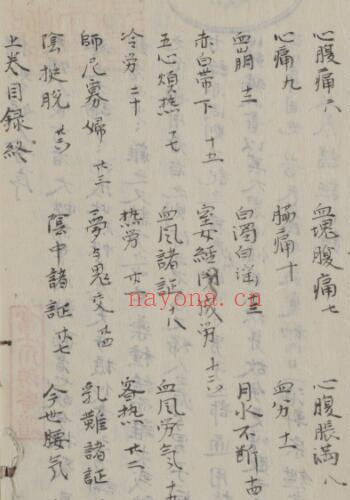 心腹痛六 血塊腹痛七 心腹脹満八
心痛九 腸痛十 血分十一
血崩十二 白濁白淫十三 月水不断十四
赤白帯下十五 室女經閉成労十六
五心煩熱十七 血風諸証十八 血風労気十九
冷労二十 熱労廿一 客熱廿二
師尼寡婦廿三 夢与鬼交廿四 乳難諸証
陰挺脱廿六 陰中諸証廿七 今世腰気
上巻目録終
nayona.cn